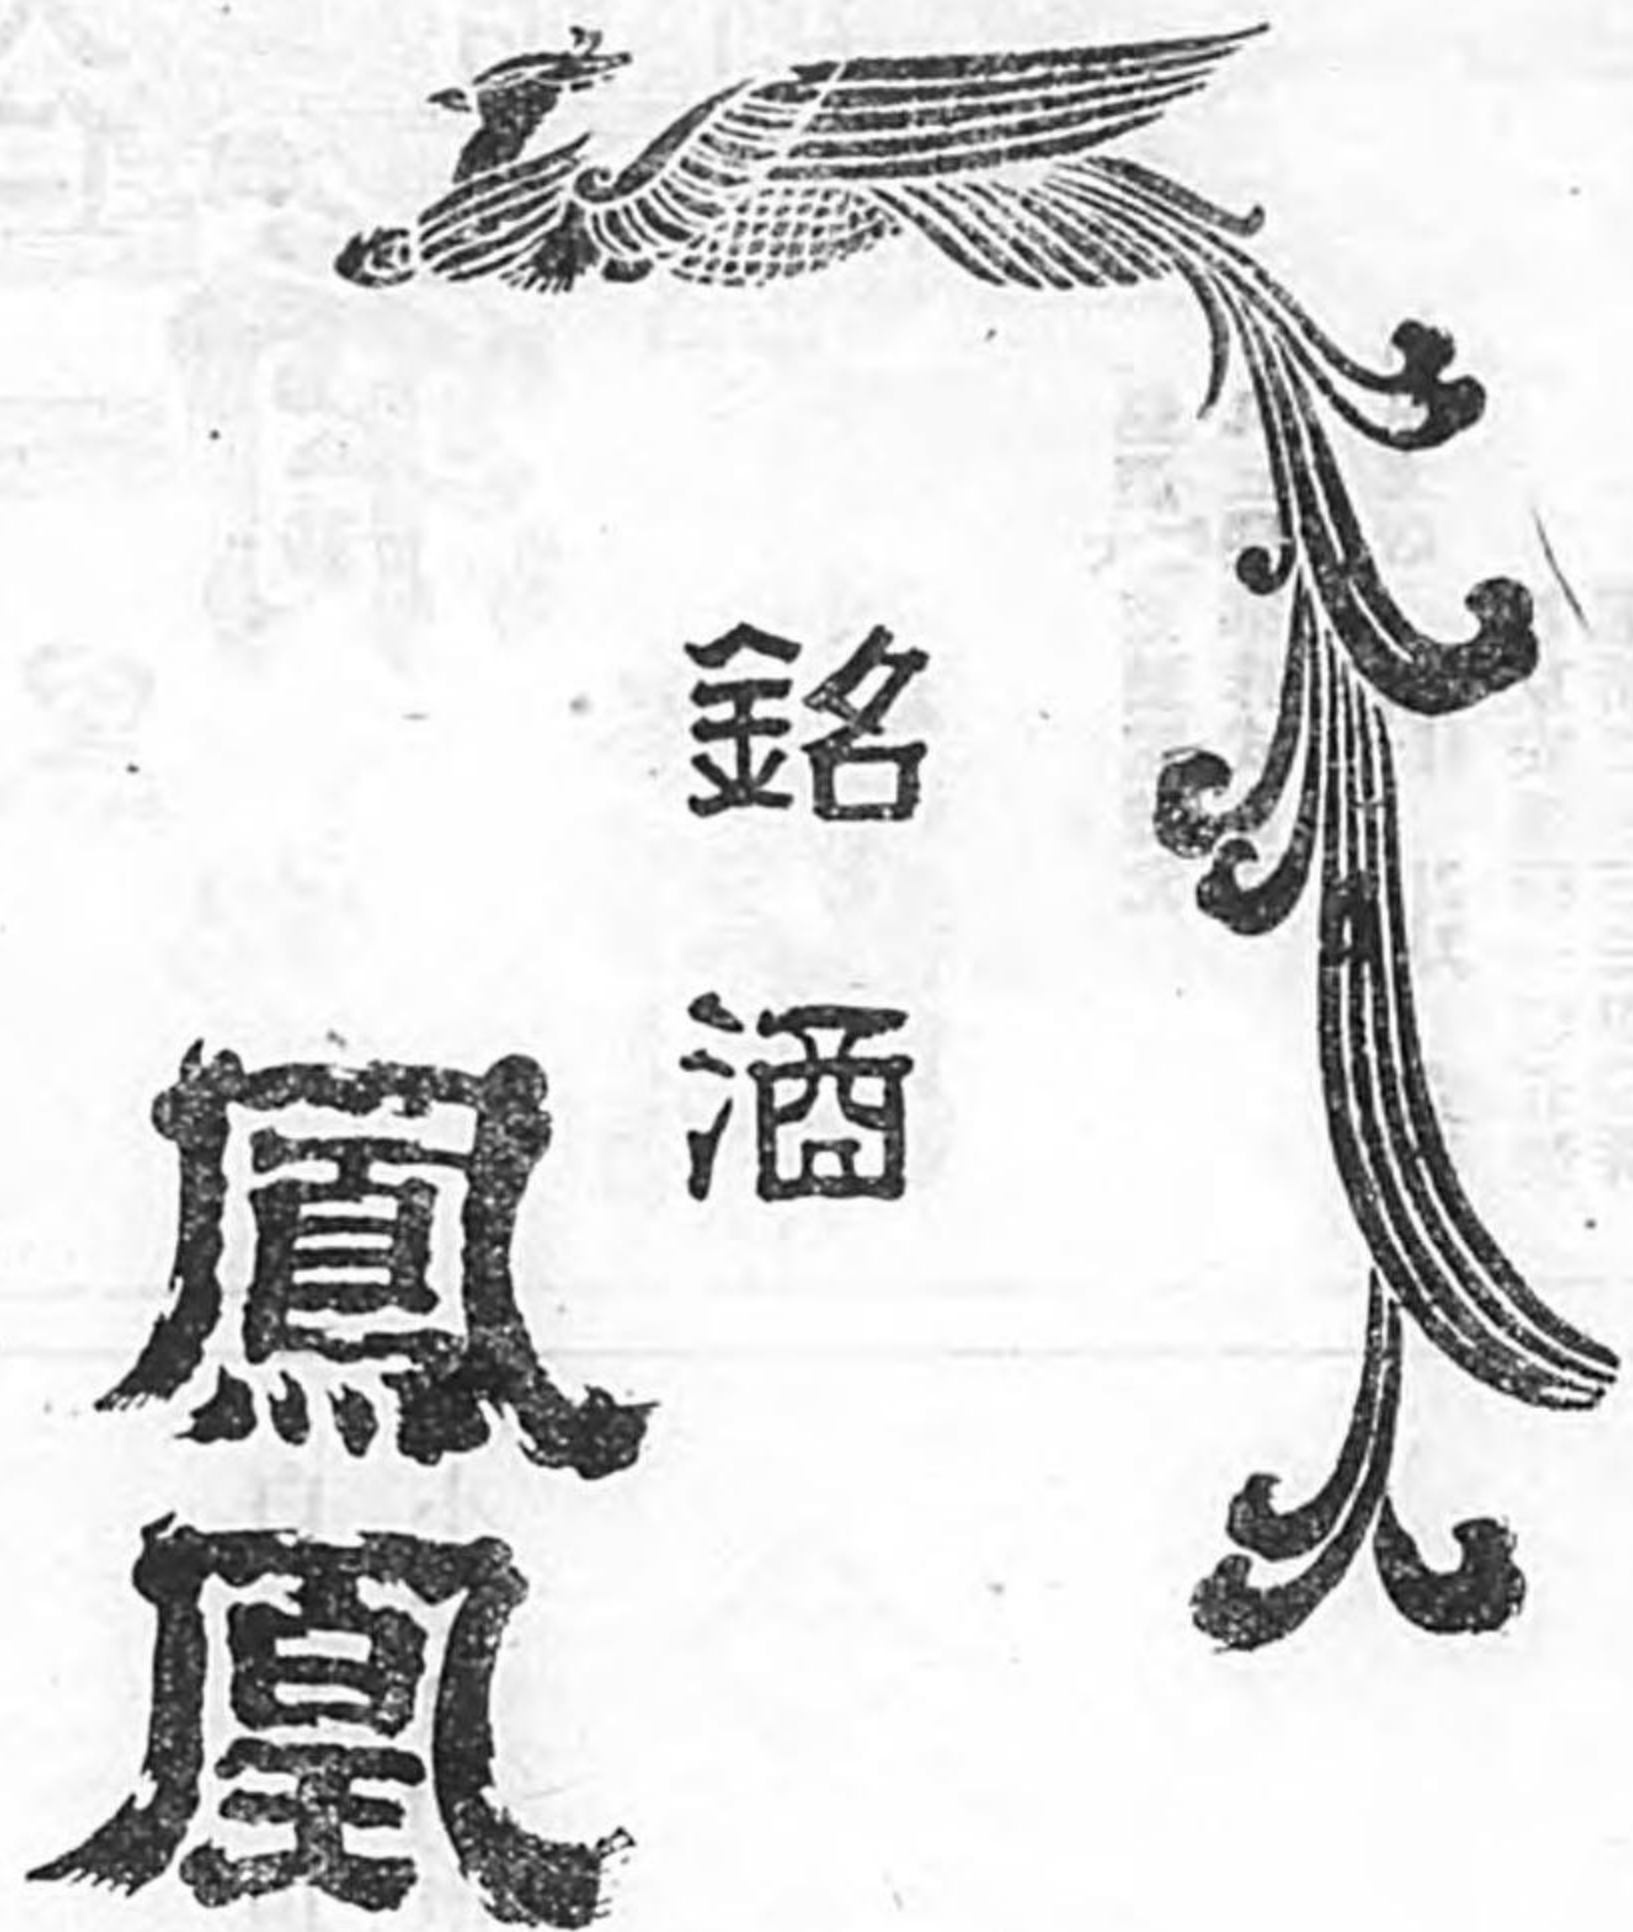 銘酒
鳳凰